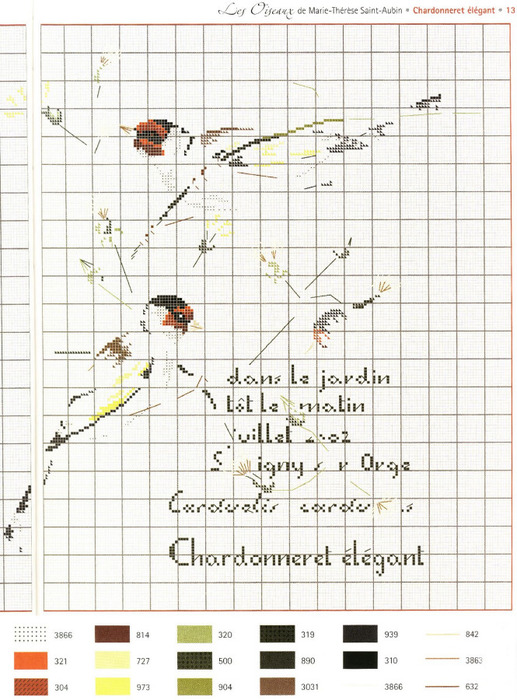 Les Oiseaux de Marie-Thérèse Saint-Aubin • Chardonneret élégant • 13
dans le jardin
tôt le matin
juillet 2002
Orge
Chardonneret élégant
3866 814 320 319 939 842
321 727 500 890 310 3863
304 973 904 3031 3866 632